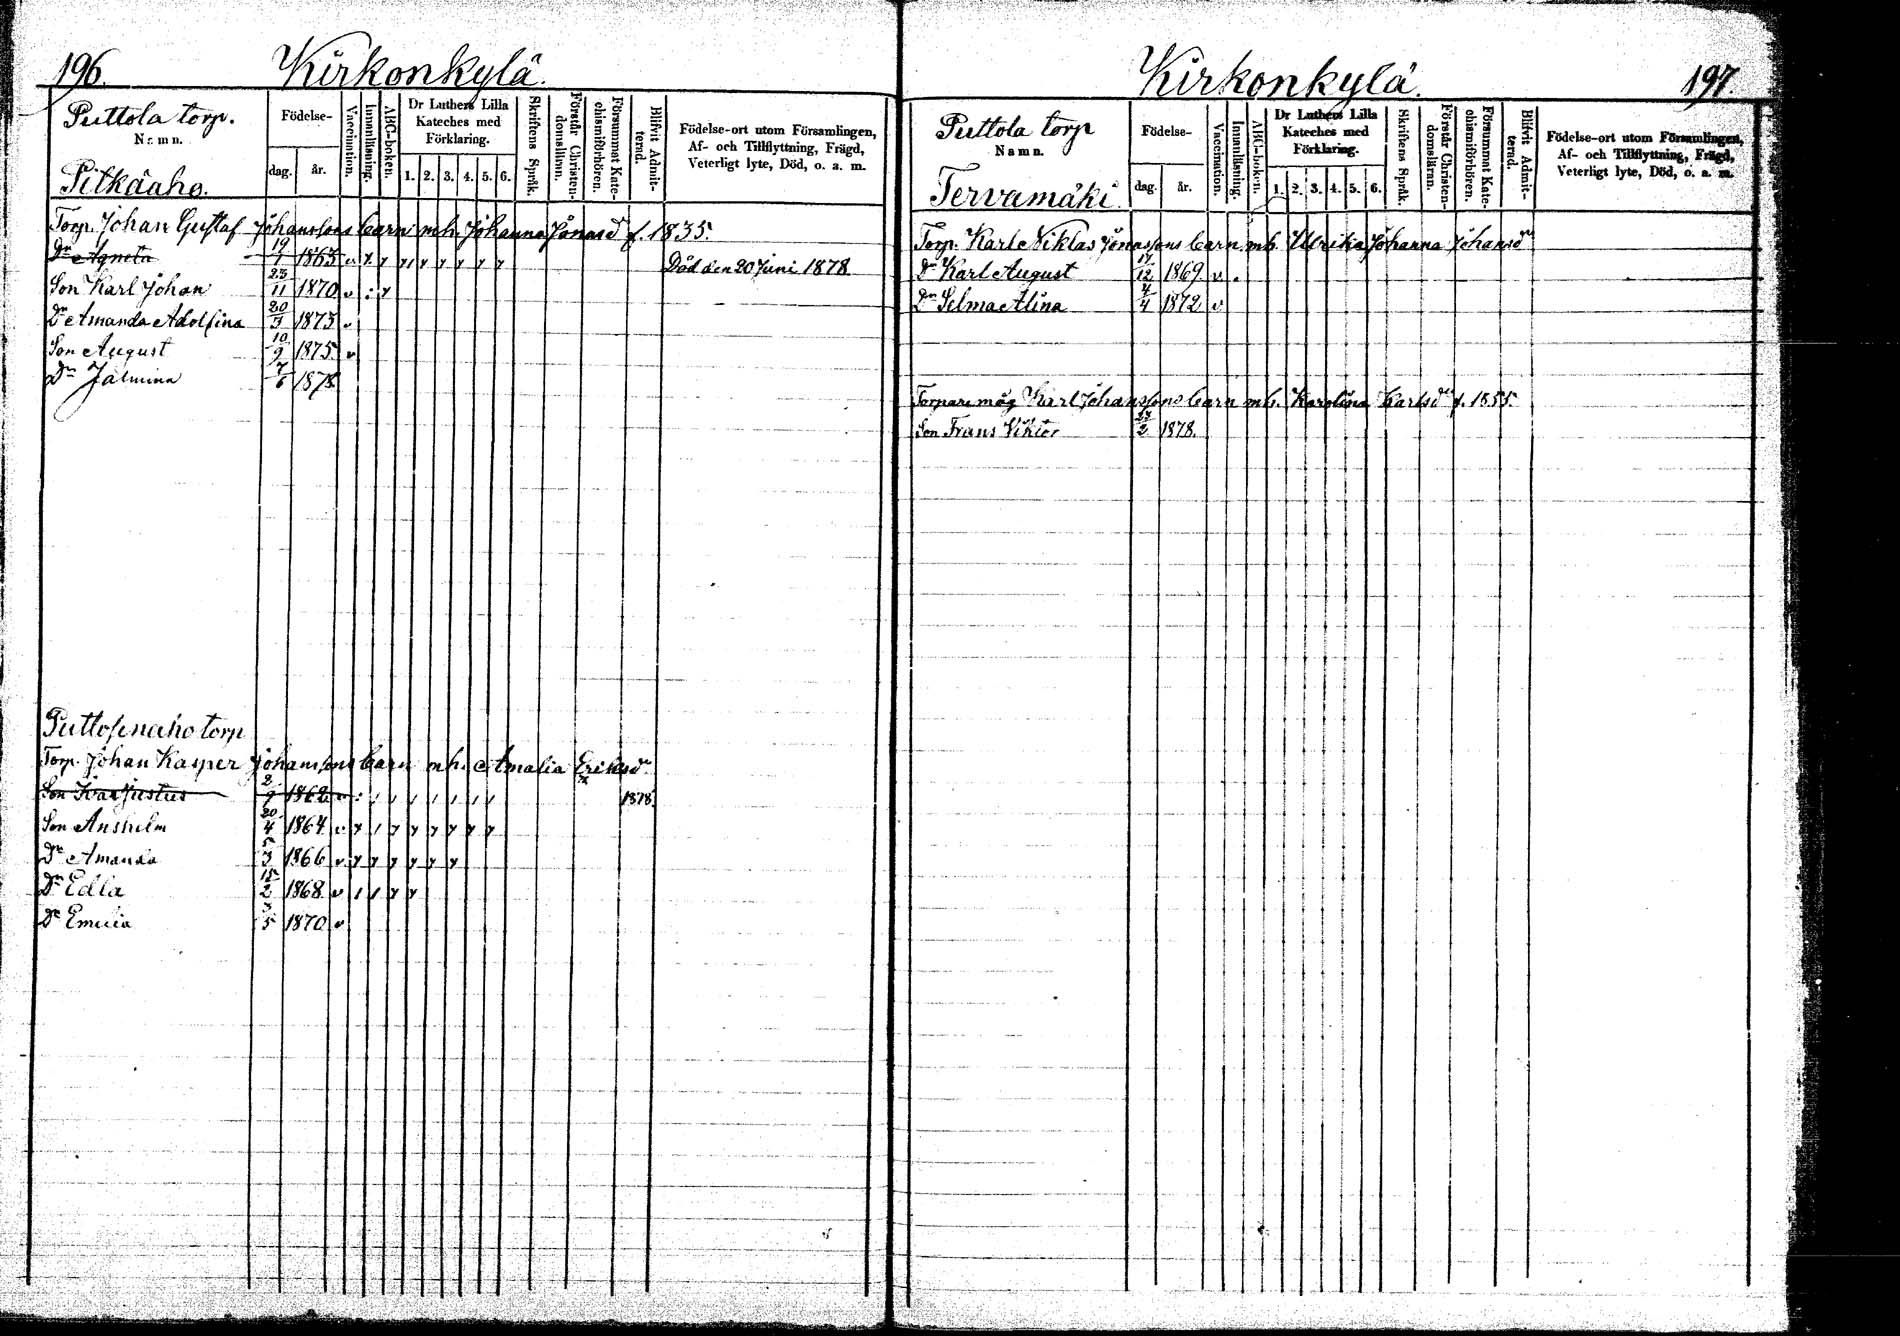 196.
Kirkonkylä.
Puttola torp.
Namn.
Pitkäaho.
Födelse-
dag. år.
Vaccination.
Innanläsning.
ABC-boken.
Dr Luthers Lilla
Kateches med
Förklaring.
1. 2. 3. 4. 5. 6.
Skriftens Språk.
Förstår Christen-
domsläran.
Försummat Kate-
chismiförhören.
Blifvit Admit-
terad.
Födelse-ort utom Församlingen,
Af- och Tillflyttning, Frägd,
Veterligt lyte, Död, o. a. m.
Torp. Johan Gustaf Johanssons barn m.h. Johanna Jonasdr f. 1835.
Dr Agneta 19/1 1863 v y y y y y y y y Död den 20 Juni 1878
Son Karl Johan 23/11 1870 v : y
Dr Amanda Adolfina 20/3 1873 v
Son August 10/9 1875 v
Dr Jalmina 7/6 1878
Puttosenaho torp
Torp. Johan Kasper Johanssons barn m.h. Amalia Eriksdr
Son Ivar Justus 2/9 1862 v : / / / / / / / 1878
Son Anshelm 20/4 1864 v y / y y y y y y
Dr Amanda 5/3 1866 v y y y y y y
Dr Edla 15/2 1868 v / / y y
Dr Emilia 3/5 1870 v
Kirkonkylä.
197.
Puttola torp
Namn.
Tervamäki.
Födelse-
dag. år.
Vaccination.
Innanläsning.
ABC-boken.
Dr Luthers Lilla
Kateches med
Förklaring.
1. 2. 3. 4. 5. 6.
Skriftens Språk.
Förstår Christen-
domsläran.
Försummat Kate-
chismiförhören.
Blifvit Admit-
terad.
Födelse-ort utom Församlingen,
Af- och Tillflyttning, Frägd,
Veterligt lyte, Död, o. a. m.
Torp. Karl Niklas Jonassons barn m.h. Ulrika Johanna Johansdr
Dr Karl August 17/12 1869 v .
Dr Selma Alina 4/4 1872 v
Torpare måg Karl Johanssons barn m.h. Karolina Karlsdr f. 1855.
Son Frans Viktor 27/2 1878.